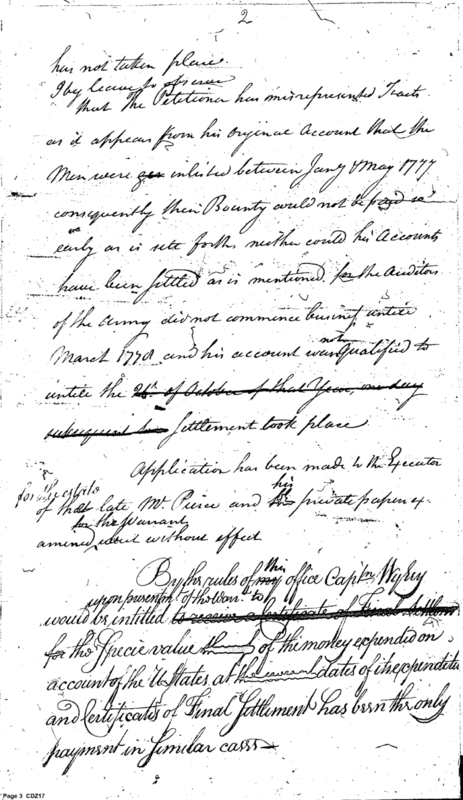 2
has not taken place.
I beg leave to observe
that the Petitioner has misrepresented Facts
as it appears from his original Account that the
Men were inlisted between Jany & May 1777
consequently their Bounty could not be paid so
early as is sett forth, neither could his Accounts
have been settled as is mentioned, for the Auditors
of the Army did not commence business untill
March 1778 and his account was not qualified to
untill the 26th of October of that Year, one day
subsequent to settlement took place
Application has been made to the Executor
for the estate
of that late Mr. Pierce and his private papers ex-
for the Warrant
amened, without effect
By the rules of this office Captn Wyley
upon presentn of the Warrt to
would be intitled to receive a Certificate of Final Settlemt
for the Specie value of the money expended on
account of the U States at the several dates of its expenditu
and Certificates of Final Settlement has been the only
payment in similar cases
Page 3 CDZ17